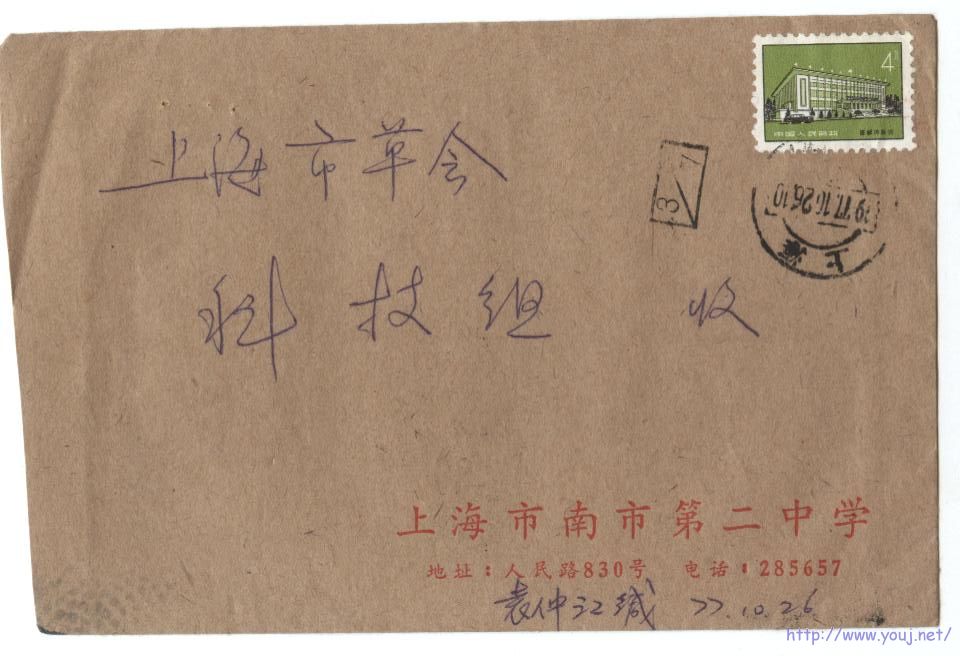 4
中国人民邮政
上海市革会
3
77.10.26.10
上海
科技组 收
上海市南市第二中学
地址：人民路830号 电话：285657
袁仲江缄 77.10.26
http://www.youj.net/